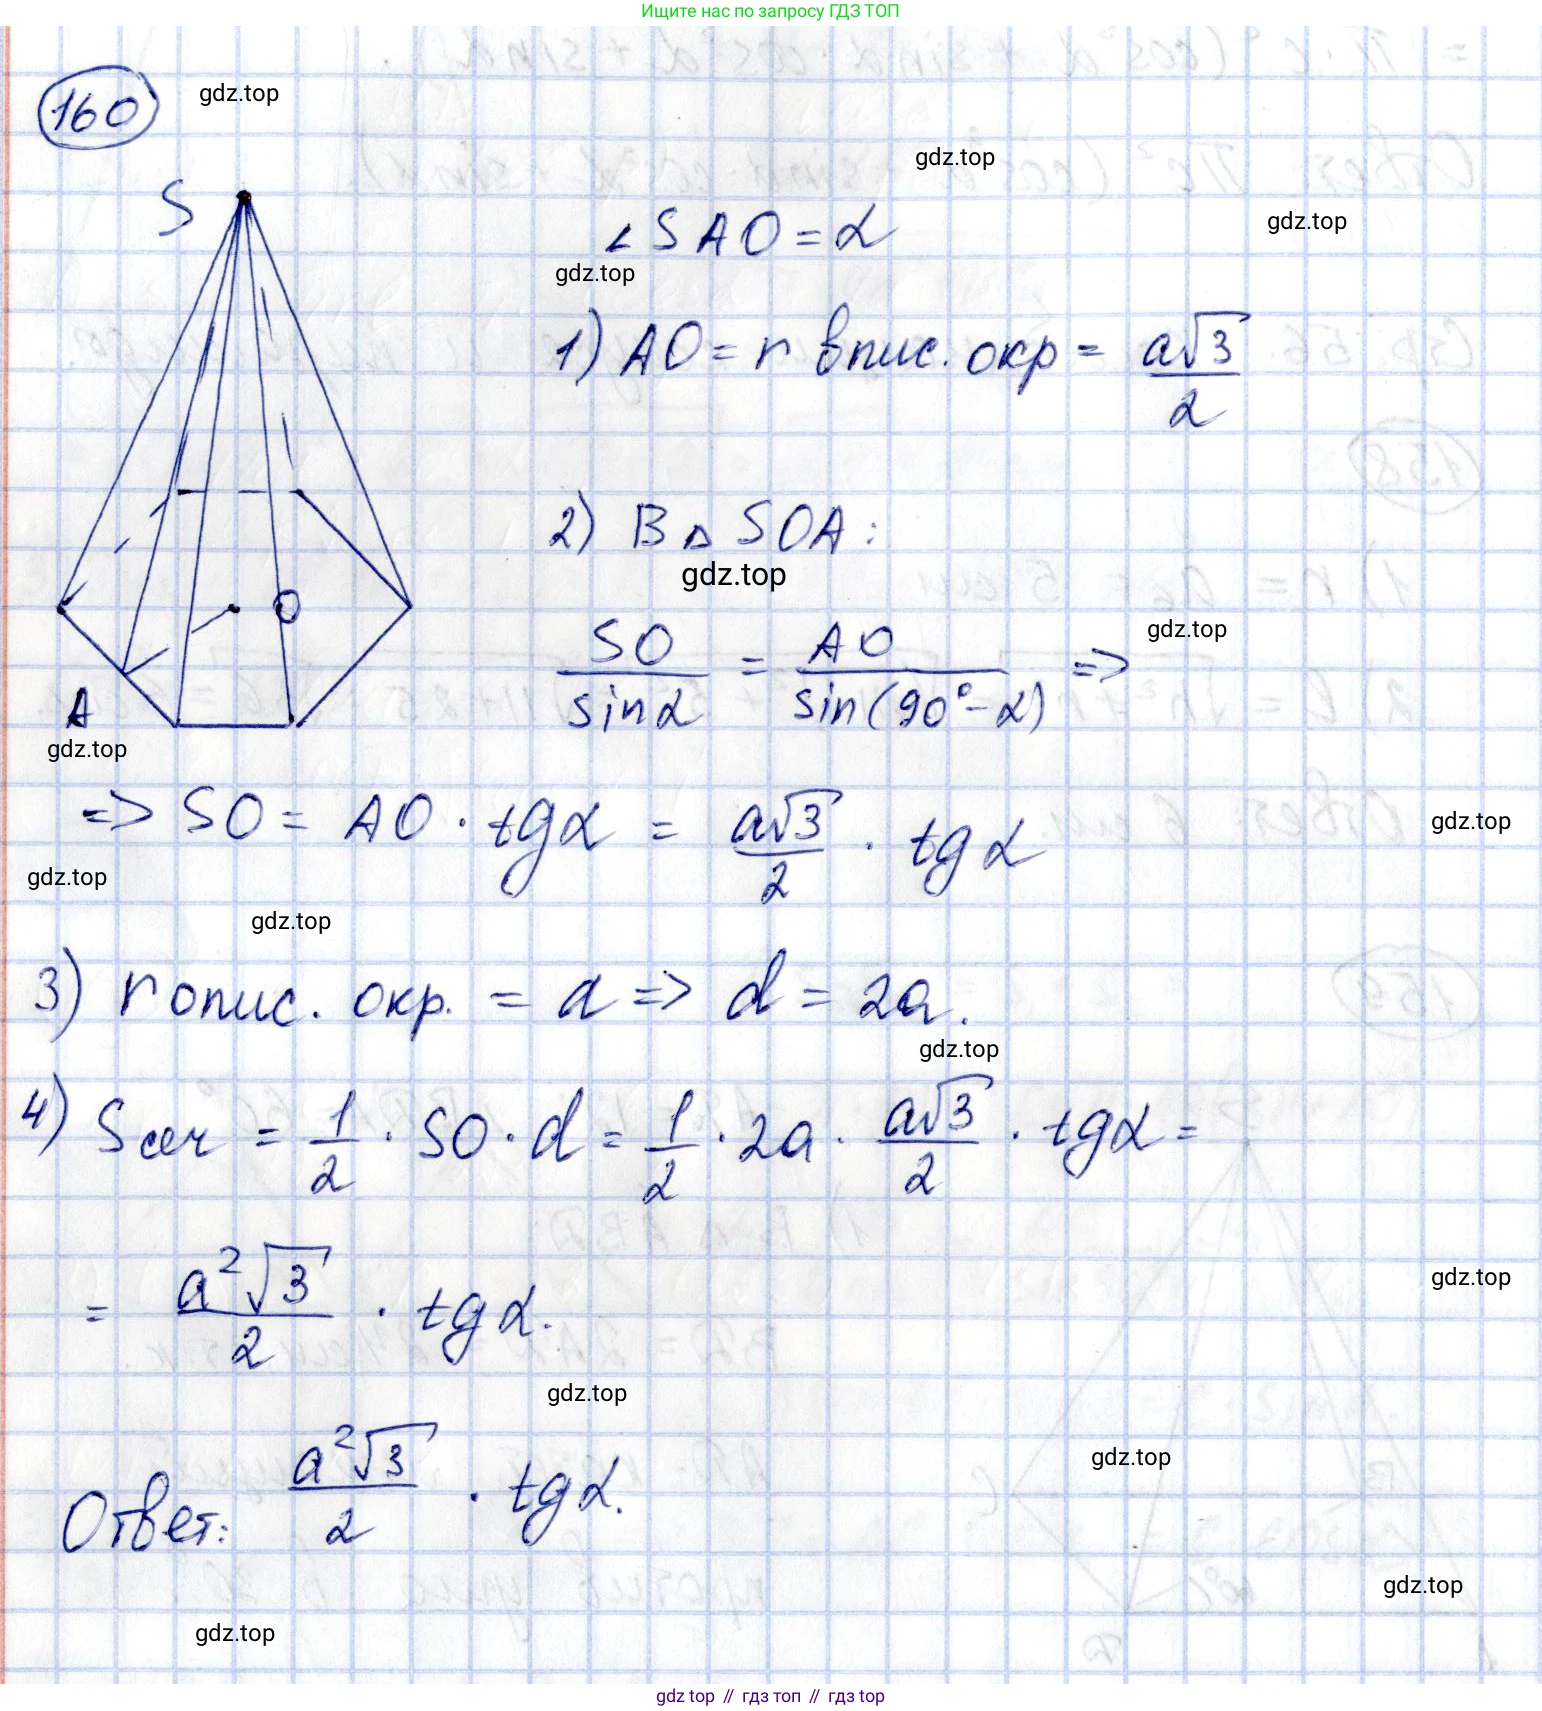 Ищите нас по запросу ГДЗ ТОП
160
gdz.top
gdz.top
S
∠SAO = α
gdz.top
gdz.top
1) AO = r впис. окр = a√3/2
2) В △ SOA:
gdz.top
O
gdz.top
SO/sinα = AO/sin(90°-α) =>
A
gdz.top
=> SO = AO · tgα = a√3/2 · tgα
gdz.top
gdz.top
gdz.top
3) r опис. окр. = a => d = 2a.
gdz.top
4) Sсеч = 1/2 · SO · d = 1/2 · 2a · a√3/2 · tgα =
= a²√3/2 · tgα.
gdz.top
gdz.top
gdz.top
Ответ: a²√3/2 · tgα.
gdz.top
gdz.top
gdz top // гдз топ // гдз top